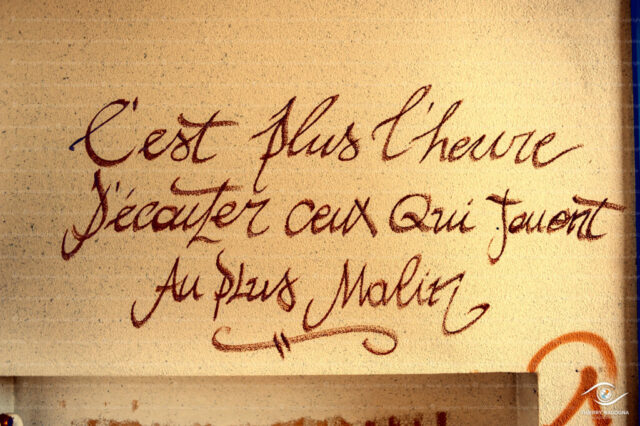 C'est plus l'heure
D'écouter ceux Qui Jouent
Au plus Malin